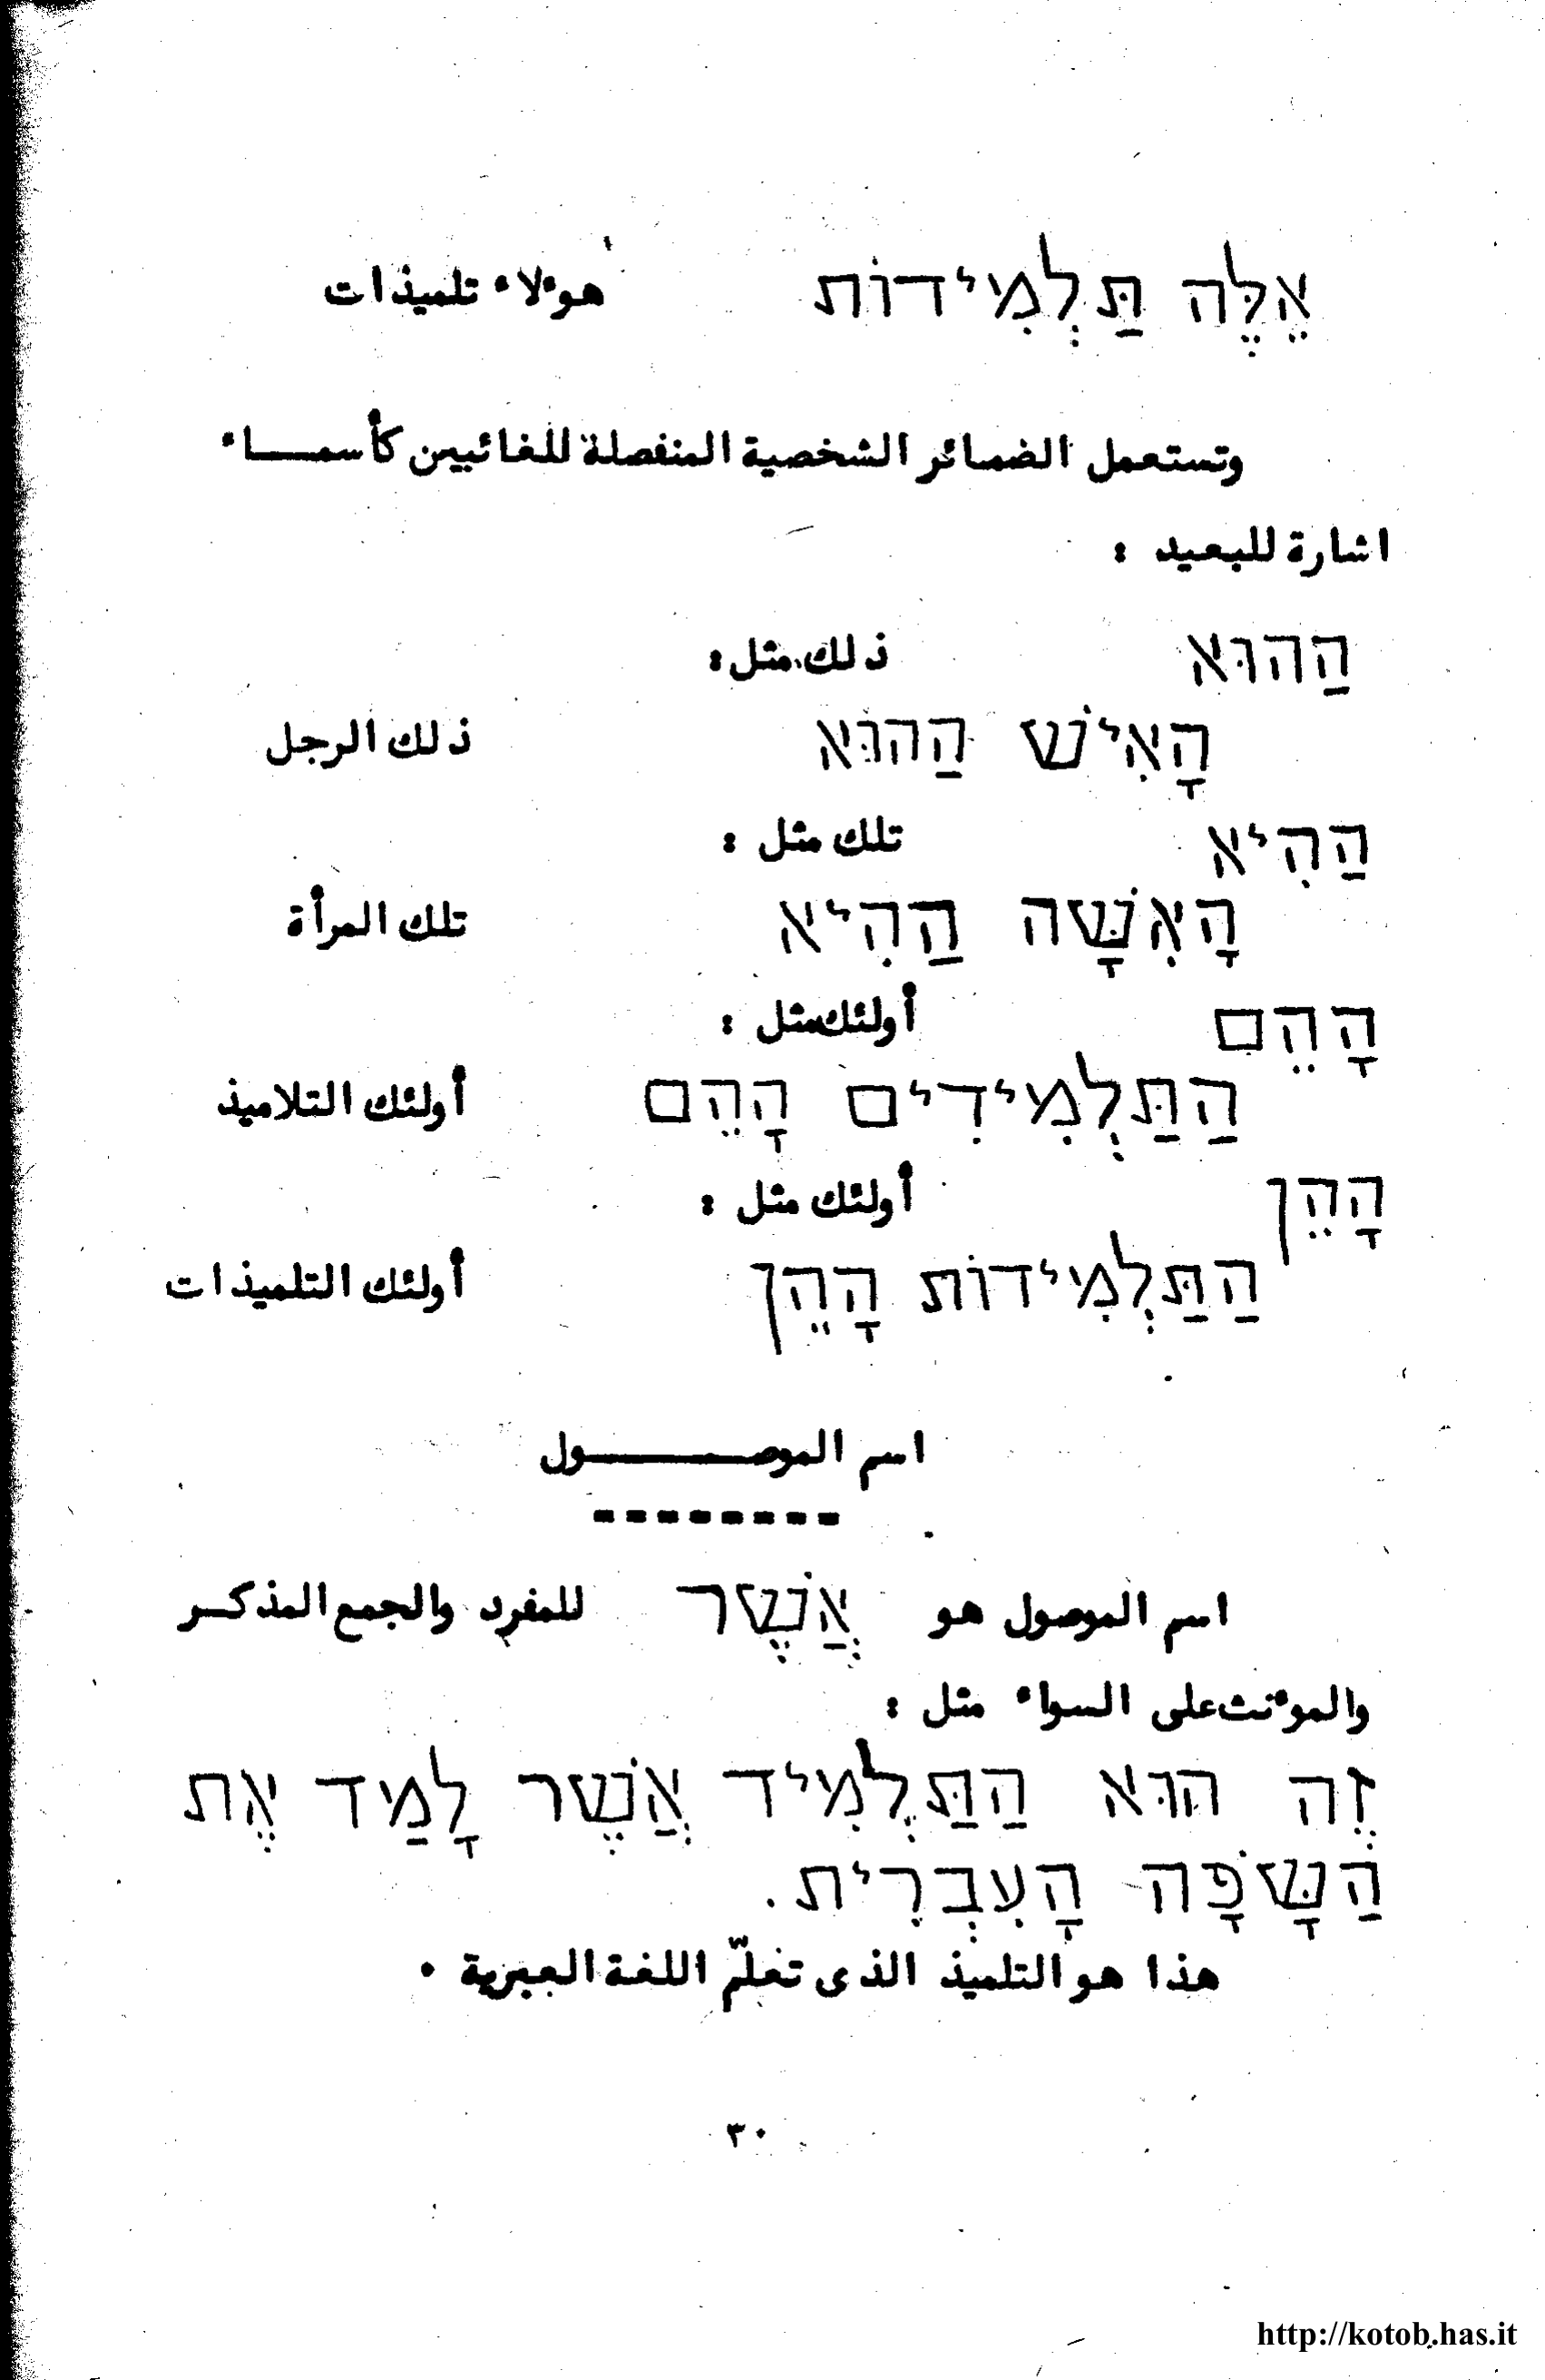 אֵלֶּה תַּלְמִידוֹת هوءلاء تلميذات
وتستعمل الضمائر الشخصية المنفصلة للغائبين كأسمـــاء
اشارة للبعيد :
הַהוּא ذلك مثل :
הָאִישׁ הַהוּא ذلك الرجل
הַהִיא تلك مثل :
הָאִשָּׁה הַהִיא تلك المرأة
הָהֵם أولئك مثل :
הַתַּלְמִידִים הָהֵם أولئك التلاميذ
הָהֵן أولئك مثل :
הַתַּלְמִידוֹת הָהֵן أولئك التلميذات
اسم الموصــــــول
--------
اسم الموصول هو אֲשֶׁר للمفرد والجمع المذكــر
والموءنث على السواء مثل :
זֶה הוּא הַתַּלְמִיד אֲשֶׁר לָמַד אֶת
הַשָּׂפָה הָעִבְרִית.
هذا هو التلميذ الذى تعلّم اللغة العبرية .
٣٠
http://kotob.has.it